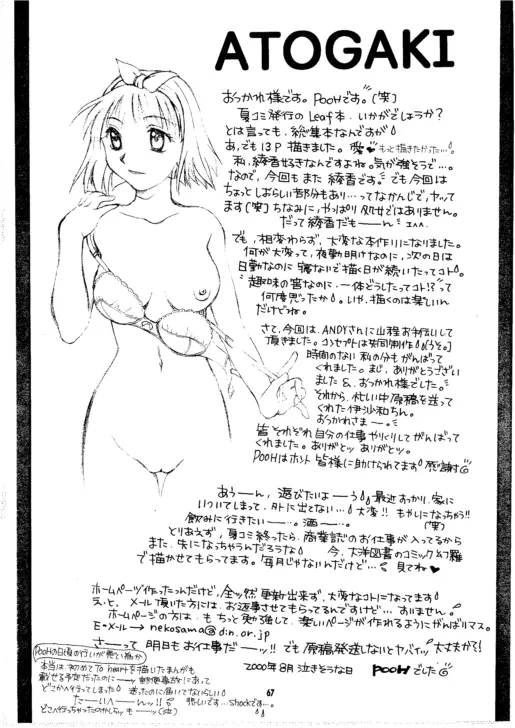 ATOGAKI
おつかれ様です。POOHです。(笑)
夏コミ発行のLeaf本、いかがでしょうか?
とは言っても、総集本なんですが
あ、でも13P描きました。 もっと描きたかった…。
私、綾香せるきなんですよね。気が強そうで…。
なので、今回もまた綾香です。でも今回は
ちょっとしばらしい部分もあり…ってなかんじで、ヤッて
ます(笑)ちなみに、やっぱり処女ではありません。
だって綾香だもーーん
でも、相変わらず、大変な本作りになりました。
何が大変って、夜勤明けなのに、次の日は
日勤なのに寝ないで描く日が続いたってコト。
趣味の宮なのに、一体どうしたってコト!?って
何度思ったか。いや、描くのは楽しいん
だけどね。
さて、今回は、ANDYさんに山程お手伝いして
頂きました。コンセプトは共同制作(うそ)。
時間のない私の分もがんばって
くれました。まじ、ありがとうござい
ました&、おつかれ様でした。
それから、忙しい中原稿を送って
くれた伊沙和ちん。
おつかれさまー。
皆それぞれ自分の仕事やりくりしてがんばって
くれました。ありがとッ ありがとッ。
POOHはホント皆様に助けられてます 感謝
あうーん、遊びたいよーう 最近すっかり家に
いついてしまって、外に出てない…。大変!!もやしになっちゃう!!
飲みに行きたいー…。酒ー…。(笑)
とりあえず、夏コミ終ったら、商業誌のお仕事が入ってるから
また、失になっちゃうんだろうな 今、大洋図書のコミック
で描かせてもらってます。毎月じゃないんだけど…。見てね♥
ホームページ作ったんだけど、全ッ然更新出来ず、大変なコトになってます
え、と、メール頂いた方には、お返事させてもらってるんですけど…すいません。
ホームページの方は、もちっと勉強して、楽しいページが作れるようにがんばりマス。
E・メール→nekosama@din.or.jp
さーって明日もお仕事だーッ!!でも原稿発送しないとヤバイッ大丈夫か!
2000年8月泣きそうな日 POOHでした
POOHの日頃の行いが悪い為か
本当は、初めてTo heartを描いたまんがも
載せる予定だったのにーッ 郵便事故にあって
どこかへ行ってしまった 送ったのに届いてないらしい
たーいへーんッ!! 悲しいです…shockです…。
どこへ行っちゃったのかしらッ もーッ(泣)
67